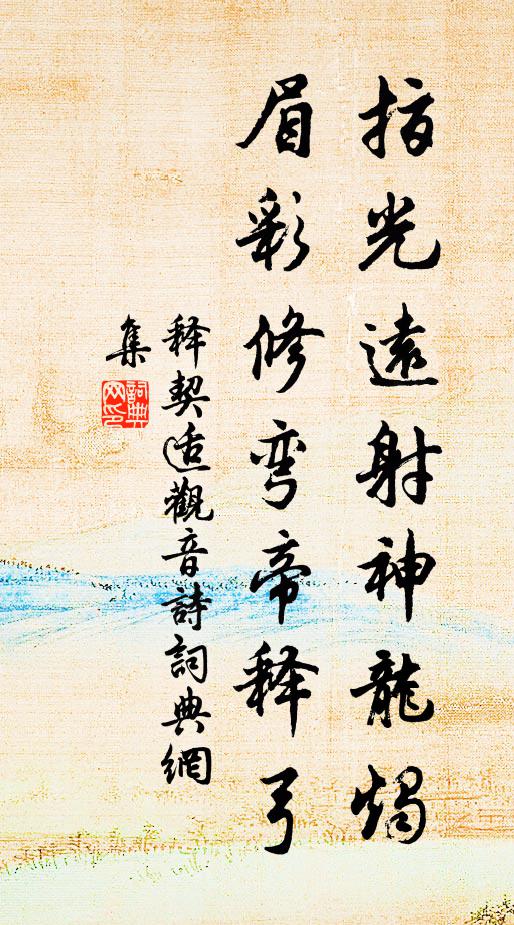 指光遠射神龍燭
眉彩修彎帝释弓
释契适觀音詩詞典網
集
詞典
网印